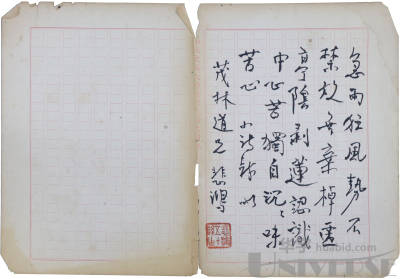 急雨狂風勢不
禁放舟棄棹匿
亭陰剥蓮認識
中心苦獨自沉〻味
苦心 小詩錄以
茂林道兄 悲鴻
huabid.com